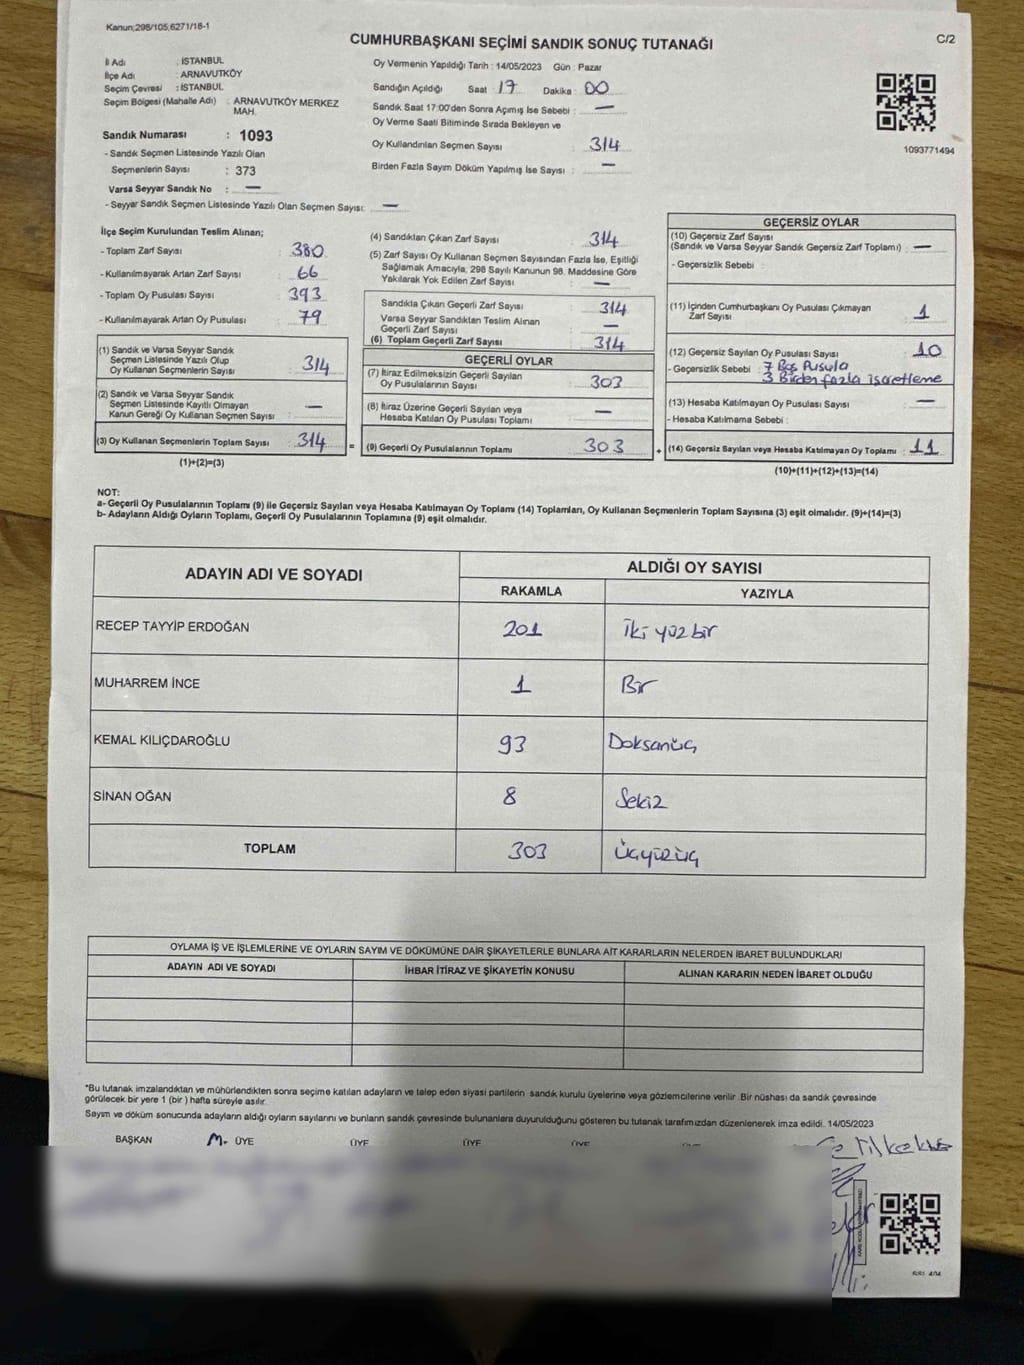 Kanun;298/105,6271/18-1
CUMHURBAŞKANI SEÇİMİ SANDIK SONUÇ TUTANAĞI
C/2
İl Adı : İSTANBUL
İlçe Adı : ARNAVUTKÖY
Seçim Çevresi : İSTANBUL
Seçim Bölgesi (Mahalle Adı) : ARNAVUTKÖY MERKEZ
MAH.
Sandık Numarası : 1093
- Sandık Seçmen Listesinde Yazılı Olan
Seçmenlerin Sayısı : 373
Varsa Seyyar Sandık No : —
- Seyyar Sandık Seçmen Listesinde Yazılı Olan Seçmen Sayısı: —
Oy Vermenin Yapıldığı Tarih : 14/05/2023 Gün : Pazar
Sandığın Açıldığı Saat : 17 Dakika : 00
Sandık Saat 17:00'den Sonra Açımış İse Sebebi : —
Oy Verme Saati Bitiminde Sırada Bekleyen ve
Oy Kullandırılan Seçmen Sayısı : 314
Birden Fazla Sayım Döküm Yapılmış İse Sayısı : —
1093771494
İlçe Seçim Kurulundan Teslim Alınan;
- Toplam Zarf Sayısı : 380
- Kullanılmayarak Artan Zarf Sayısı : 66
- Toplam Oy Pusulası Sayısı : 393
- Kullanılmayarak Artan Oy Pusulası : 79
(1) Sandık ve Varsa Seyyar Sandık
Seçmen Listesinde Yazılı Olup
Oy Kullanan Seçmenlerin Sayısı : 314
(2) Sandık ve Varsa Seyyar Sandık
Seçmen Listesinde Kayıtlı Olmayan
Kanun Gereği Oy Kullanan Seçmen Sayısı : —
(3) Oy Kullanan Seçmenlerin Toplam Sayısı : 314
(1)+(2)=(3)
(4) Sandıktan Çıkan Zarf Sayısı : 314
(5) Zarf Sayısı Oy Kullanan Seçmen Sayısından Fazla İse, Eşitliği
Sağlamak Amacıyla, 298 Sayılı Kanunun 98. Maddesine Göre
Yakılarak Yok Edilen Zarf Sayısı : —
Sandıkta Çıkan Geçerli Zarf Sayısı : 314
Varsa Seyyar Sandıktan Teslim Alınan
Geçerli Zarf Sayısı : —
(6) Toplam Geçerli Zarf Sayısı : 314
GEÇERLİ OYLAR
(7) İtiraz Edilmeksizin Geçerli Sayılan
Oy Pusulalarının Sayısı : 303
(8) İtiraz Üzerine Geçerli Sayılan veya
Hesaba Katılan Oy Pusulaları Toplamı : —
= (9) Geçerli Oy Pusulalarının Toplamı : 303
GEÇERSİZ OYLAR
(10) Geçersiz Zarf Sayısı
(Sandık ve Varsa Seyyar Sandık Geçersiz Zarf Toplamı) : —
- Geçersizlik Sebebi :
(11) İçinden Cumhurbaşkanı Oy Pusulası Çıkmayan
Zarf Sayısı : 1
(12) Geçersiz Sayılan Oy Pusulası Sayısı : 10
- Geçersizlik Sebebi : 7 Boş Pusula
3 Birden fazla işaretleme
(13) Hesaba Katılmayan Oy Pusulası Sayısı : —
- Hesaba Katılmama Sebebi :
+ (14) Geçersiz Sayılan veya Hesaba Katılmayan Oy Toplamı : 11
(10)+(11)+(12)+(13)=(14)
NOT:
a- Geçerli Oy Pusulalarının Toplamı (9) ile Geçersiz Sayılan veya Hesaba Katılmayan Oy Toplamı (14) Toplamları, Oy Kullanan Seçmenlerin Toplam Sayısına (3) eşit olmalıdır. (9)+(14)=(3)
b- Adayların Aldığı Oyların Toplamı, Geçerli Oy Pusulalarının Toplamına (9) eşit olmalıdır.
ADAYIN ADI VE SOYADI
ALDIĞI OY SAYISI
RAKAMLA YAZIYLA
RECEP TAYYİP ERDOĞAN 201 İki yüz bir
MUHARREM İNCE 1 Bir
KEMAL KILIÇDAROĞLU 93 Doksanüç
SİNAN OĞAN 8 Sekiz
TOPLAM 303 Üçyüzüç
OYLAMA İŞ VE İŞLEMLERİNE VE OYLARIN SAYIM VE DÖKÜMÜNE DAİR ŞİKAYETLERLE BUNLARA AİT KARARLARIN NELERDEN İBARET BULUNDUKLARI
ADAYIN ADI VE SOYADI İHBAR İTİRAZ VE ŞİKAYETİN KONUSU ALINAN KARARIN NEDEN İBARET OLDUĞU
*Bu tutanak imzalandıktan ve mühürlendikten sonra seçime katılan adayların ve talep eden siyasi partilerin sandık kurulu üyelerine veya gözlemcilerine verilir. Bir nüshası da sandık çevresinde
görülecek bir yere 1 (bir ) hafta süreyle asılır.
Sayım ve döküm sonucunda adayların aldığı oyların sayılarını ve bunların sandık çevresinde bulunanlara duyurulduğunu gösteren bu tutanak tarafımızdan düzenlenerek imza edildi. 14/05/2023
BAŞKAN M. ÜYE ÜYE ÜYE ÜYE